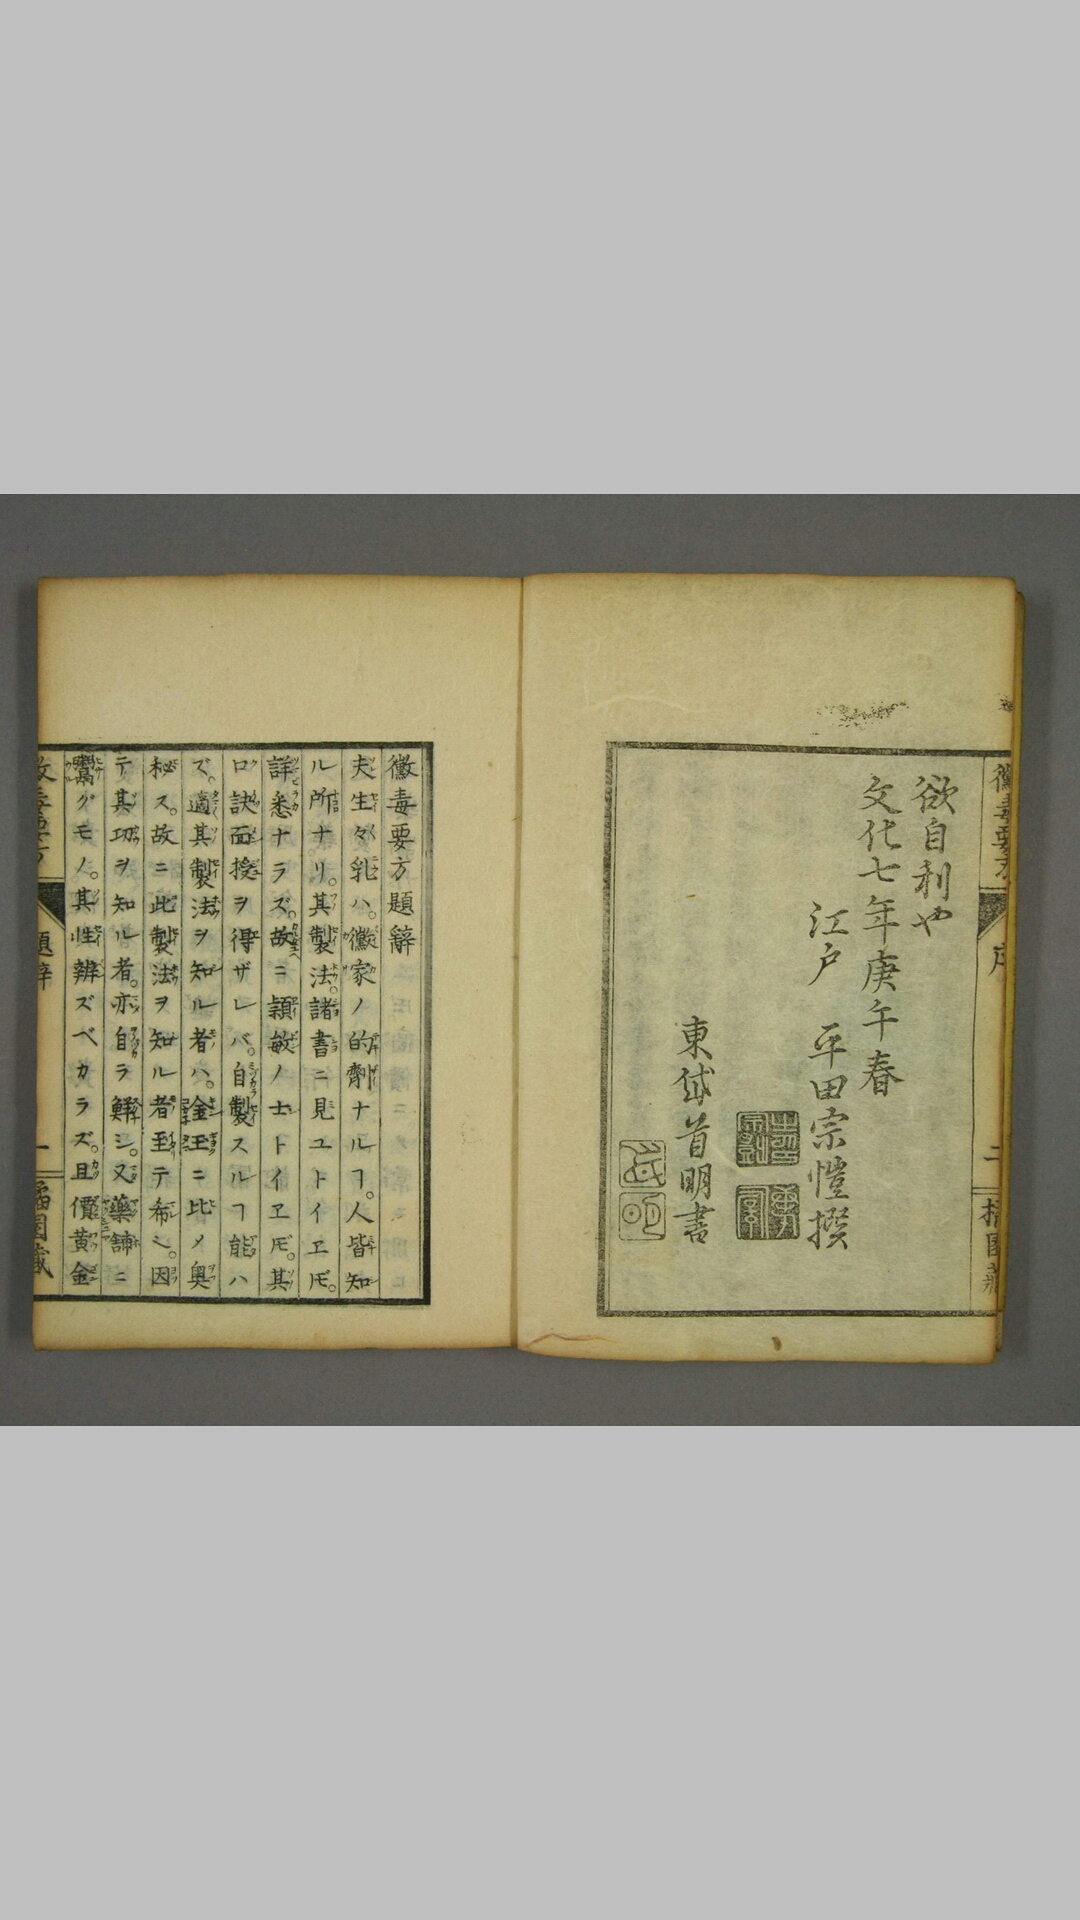 黴毒要方
序
二
欲自利也
文化七年庚午春
江戸 平田宗愷撰
東岱首明書
黴毒要方題辭
夫生々乳ハ。黴家ノ的劑ナルヿ。人皆知
ル所ナリ。其製法。諸書ニ見ユトイヱ𪜈。
詳悉ナラズ。故ニ頴敏ノ士トイヱ𪜈。其
口訣面授ヲ得ザレバ。自製スルヿ能ハ
ズ。適其製法ヲ知ル者ハ。金玉ニ比メ奥
秘ス。故ニ此製法ヲ知ル者至テ希ㇸ。因
テ其功ヲ知ル者。亦自ラ鮮シ。又藥舗ニ
鬻グモノ。其性辨ズベカラズ。且價黄金
題辭
一